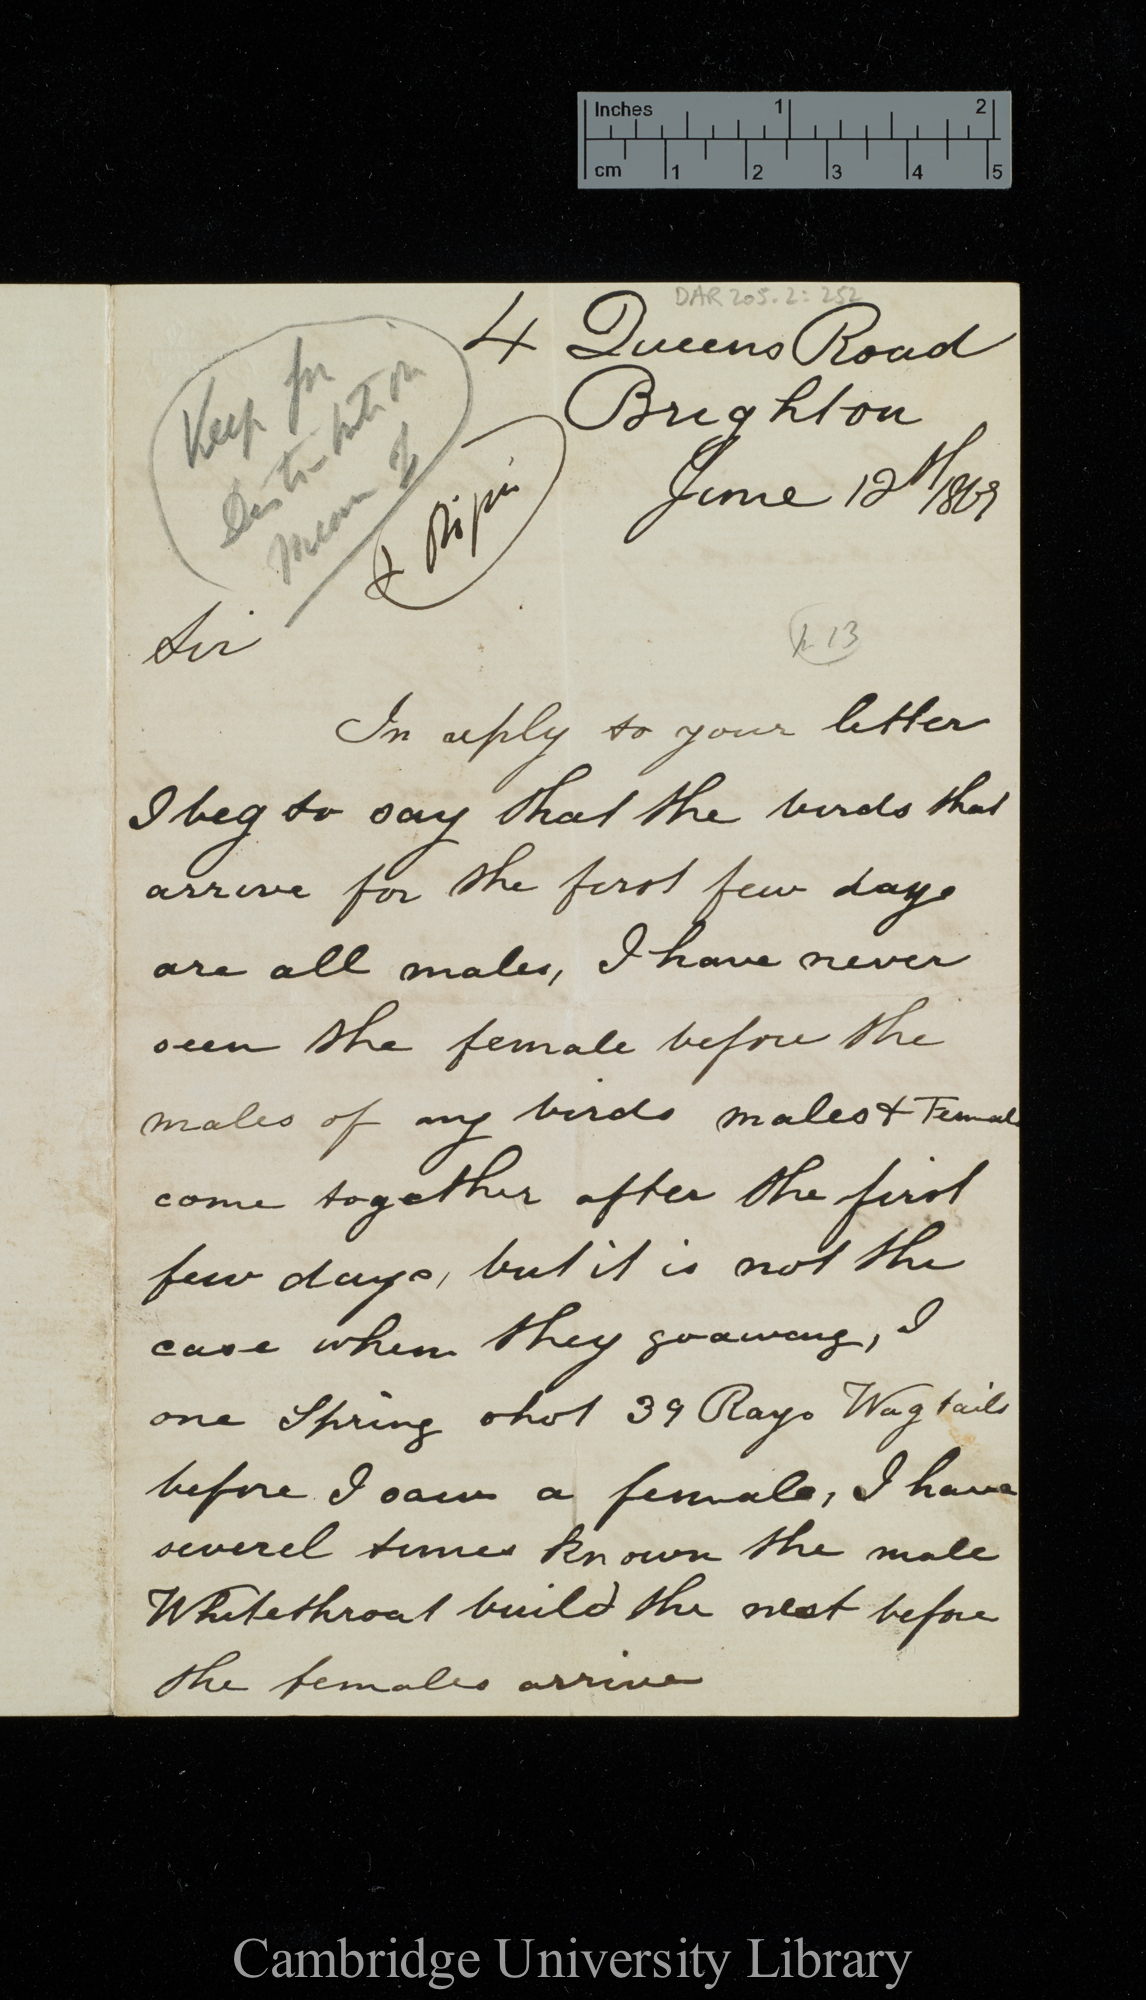 Inches 1 2
cm 1 2 3 4 5
DAR 205.2: 252
4 Queens Road
Brighton
June 12th/1869
Keep for
Distribution
means of
&
Sir
13
In reply to your letter
I beg to say that the birds that
arrive for the first few days
are all males, I have never
seen the female before the
males of my birds males & Female
come together after the first
few days, but it is not the
case when they go away, I
one Spring shot 39 Rays Wagtails
before I saw a female, I have
severel times known the male
Whitethroat build the nest before
the females arrive
Cambridge University Library